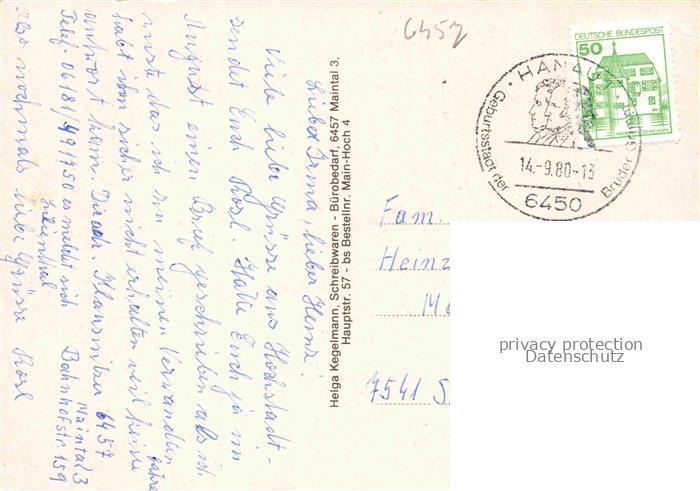 6457
DEUTSCHE BUNDESPOST
50
HANAU
Geburtsstadt der Brüder
14.-9.80-13
6450
Liebe Irma, lieber Heinz!
Viele liebe Grüsse aus Hochstadt -
sendet Euch Rosl. Hatte Euch ja im
August einen Brief geschrieben als ich
wuste das ich zu meinen Verwandten fahre
habt ihn sicher nicht erhalten weil keine
antwort kam. Diead. 6457
Maintal 3
Telef. 06181/491750 es meldet sich Bahnhofstr. 159
Lilienthal
Also nochmals liebe Grüsse Rosl
Helga Kegelmann, Schreibwaren - Bürobedarf, 6457 Maintal 3,
Hauptstr. 57 - bs Bestellnr. Main-Hoch 4
Fam.
Heinz
7541
privacy protection
Datenschutz